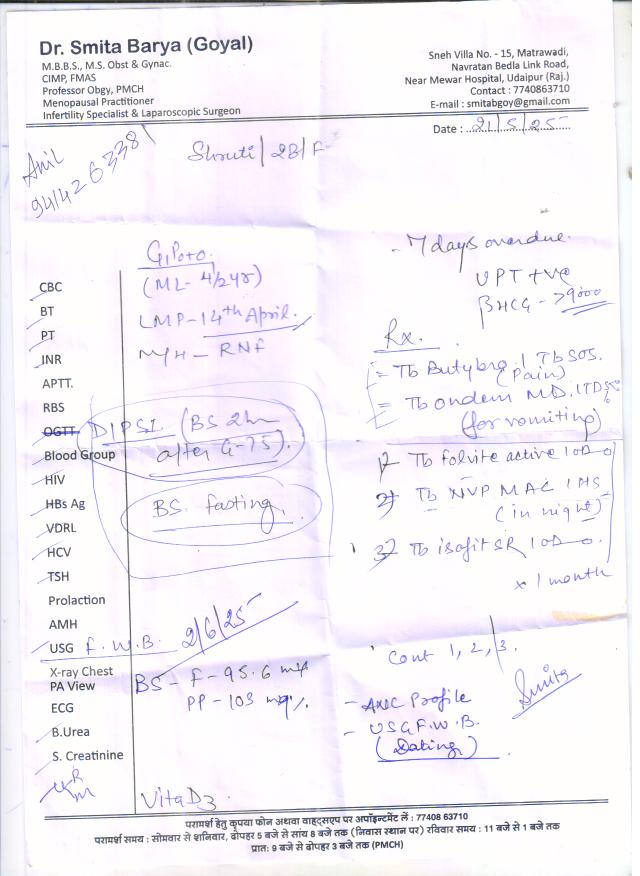 Dr. Smita Barya (Goyal)
M.B.B.S., M.S. Obst & Gynac.
CIMP, FMAS
Professor Obgy, PMCH
Menopausal Practitioner
Infertility Specialist & Laparoscopic Surgeon
Sneh Villa No. - 15, Matrawadi,
Navratan Bedla Link Road,
Near Mewar Hospital, Udaipur (Raj.)
Contact : 7740863710
E-mail : smitabgoy@gmail.com
Date : 21/5/25
Anil
9414263338
Shruti / 28/F
G1P0+0
(ML- 4/2yr)
LMP-14th April.
M/H - RNF
- 7 days overdue
UPT +ve
βHCG - >9000
Rx.
= Tb Butybro 1 Tb SOS.
(Pain)
= Tb ondem MD. 1 TDS
(for vomiting)
1) Tb folvite active 1 OD
2) Tb NVP MAC 1 HS
(in night)
3) Tb isofit SR 1 OD
x 1 month
CBC
BT
PT
INR
APTT.
RBS
OGTT DIPSI (BS 2hr
after G-75).
Blood Group
HIV
HBs Ag
BS. fasting.
VDRL
HCV
TSH
Prolaction
AMH
USG F.W.B. 2/6/25
X-ray Chest
PA View
BS - F - 95.6 mg%
PP - 103 mg%
ECG
B.Urea
S. Creatinine
Vita D3
Cont 1, 2, 3.
Smita
- ANC Profile
- USG F.W.B.
(Dating)
परामर्श हेतु कृपया फोन अथवा वाह्ट्सएप पर अपॉइन्टमेंट लें : 77408 63710
परामर्श समय : सोमवार से शनिवार, दोपहर 5 बजे से सांय 8 बजे तक (निवास स्थान पर) रविवार समय : 11 बजे से 1 बजे तक
प्रातः 9 बजे से दोपहर 3 बजे तक (PMCH)